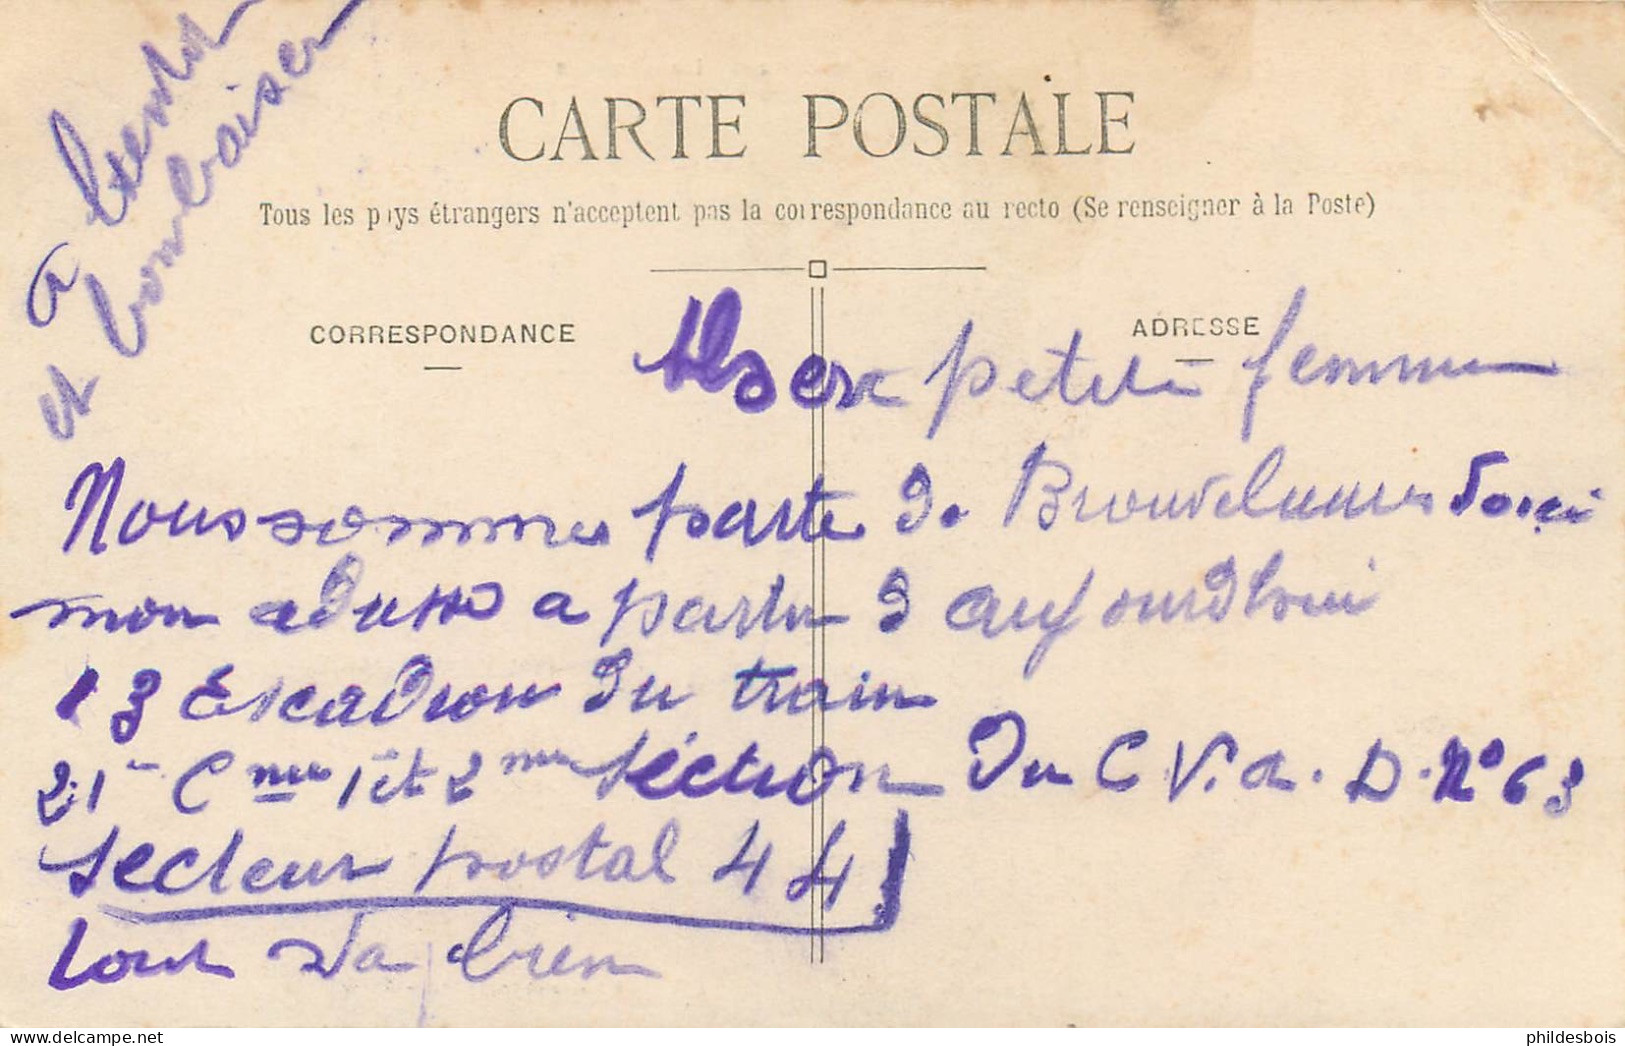 CARTE POSTALE
Tous les pays étrangers n'acceptent pas la correspondance au recto (Se renseigner à la Poste)
CORRESPONDANCE
ADRESSE
petite femme
Nous sommes parte de Brouvelieures voici
mon adresse a partir d aujourdhui
13 Escadron du train
21e Cnie 1 et 2me séction Du C V. a. D. No 63
secteur postal 44
tout va bien
a bientot
et bon baiser
phildesbois